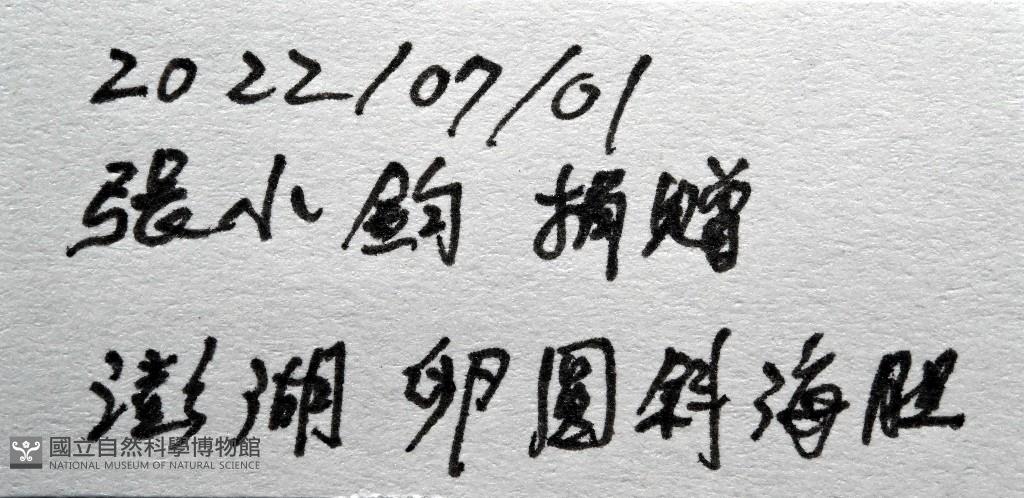 2022/07/01
張小鈞 捐贈
澎湖 卵圓斜海胆
國立自然科學博物館
NATIONAL MUSEUM OF NATURAL SCIENCE